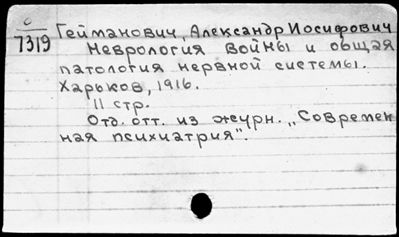 с
7319
Гейманович, Александр Иосифович
Неврология войны и общая
патология нервной системы.
Харьков, 1916.
11 стр.
Отд. отт. из журн. „Современ
ная психиатрия".